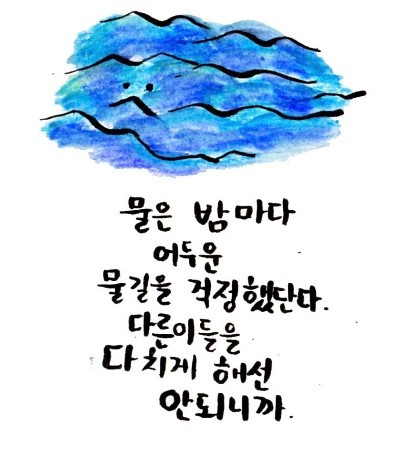 물은 밤마다
어두운
물길을 걱정했단다.
다른이들을
다치게 해선
안되니까.